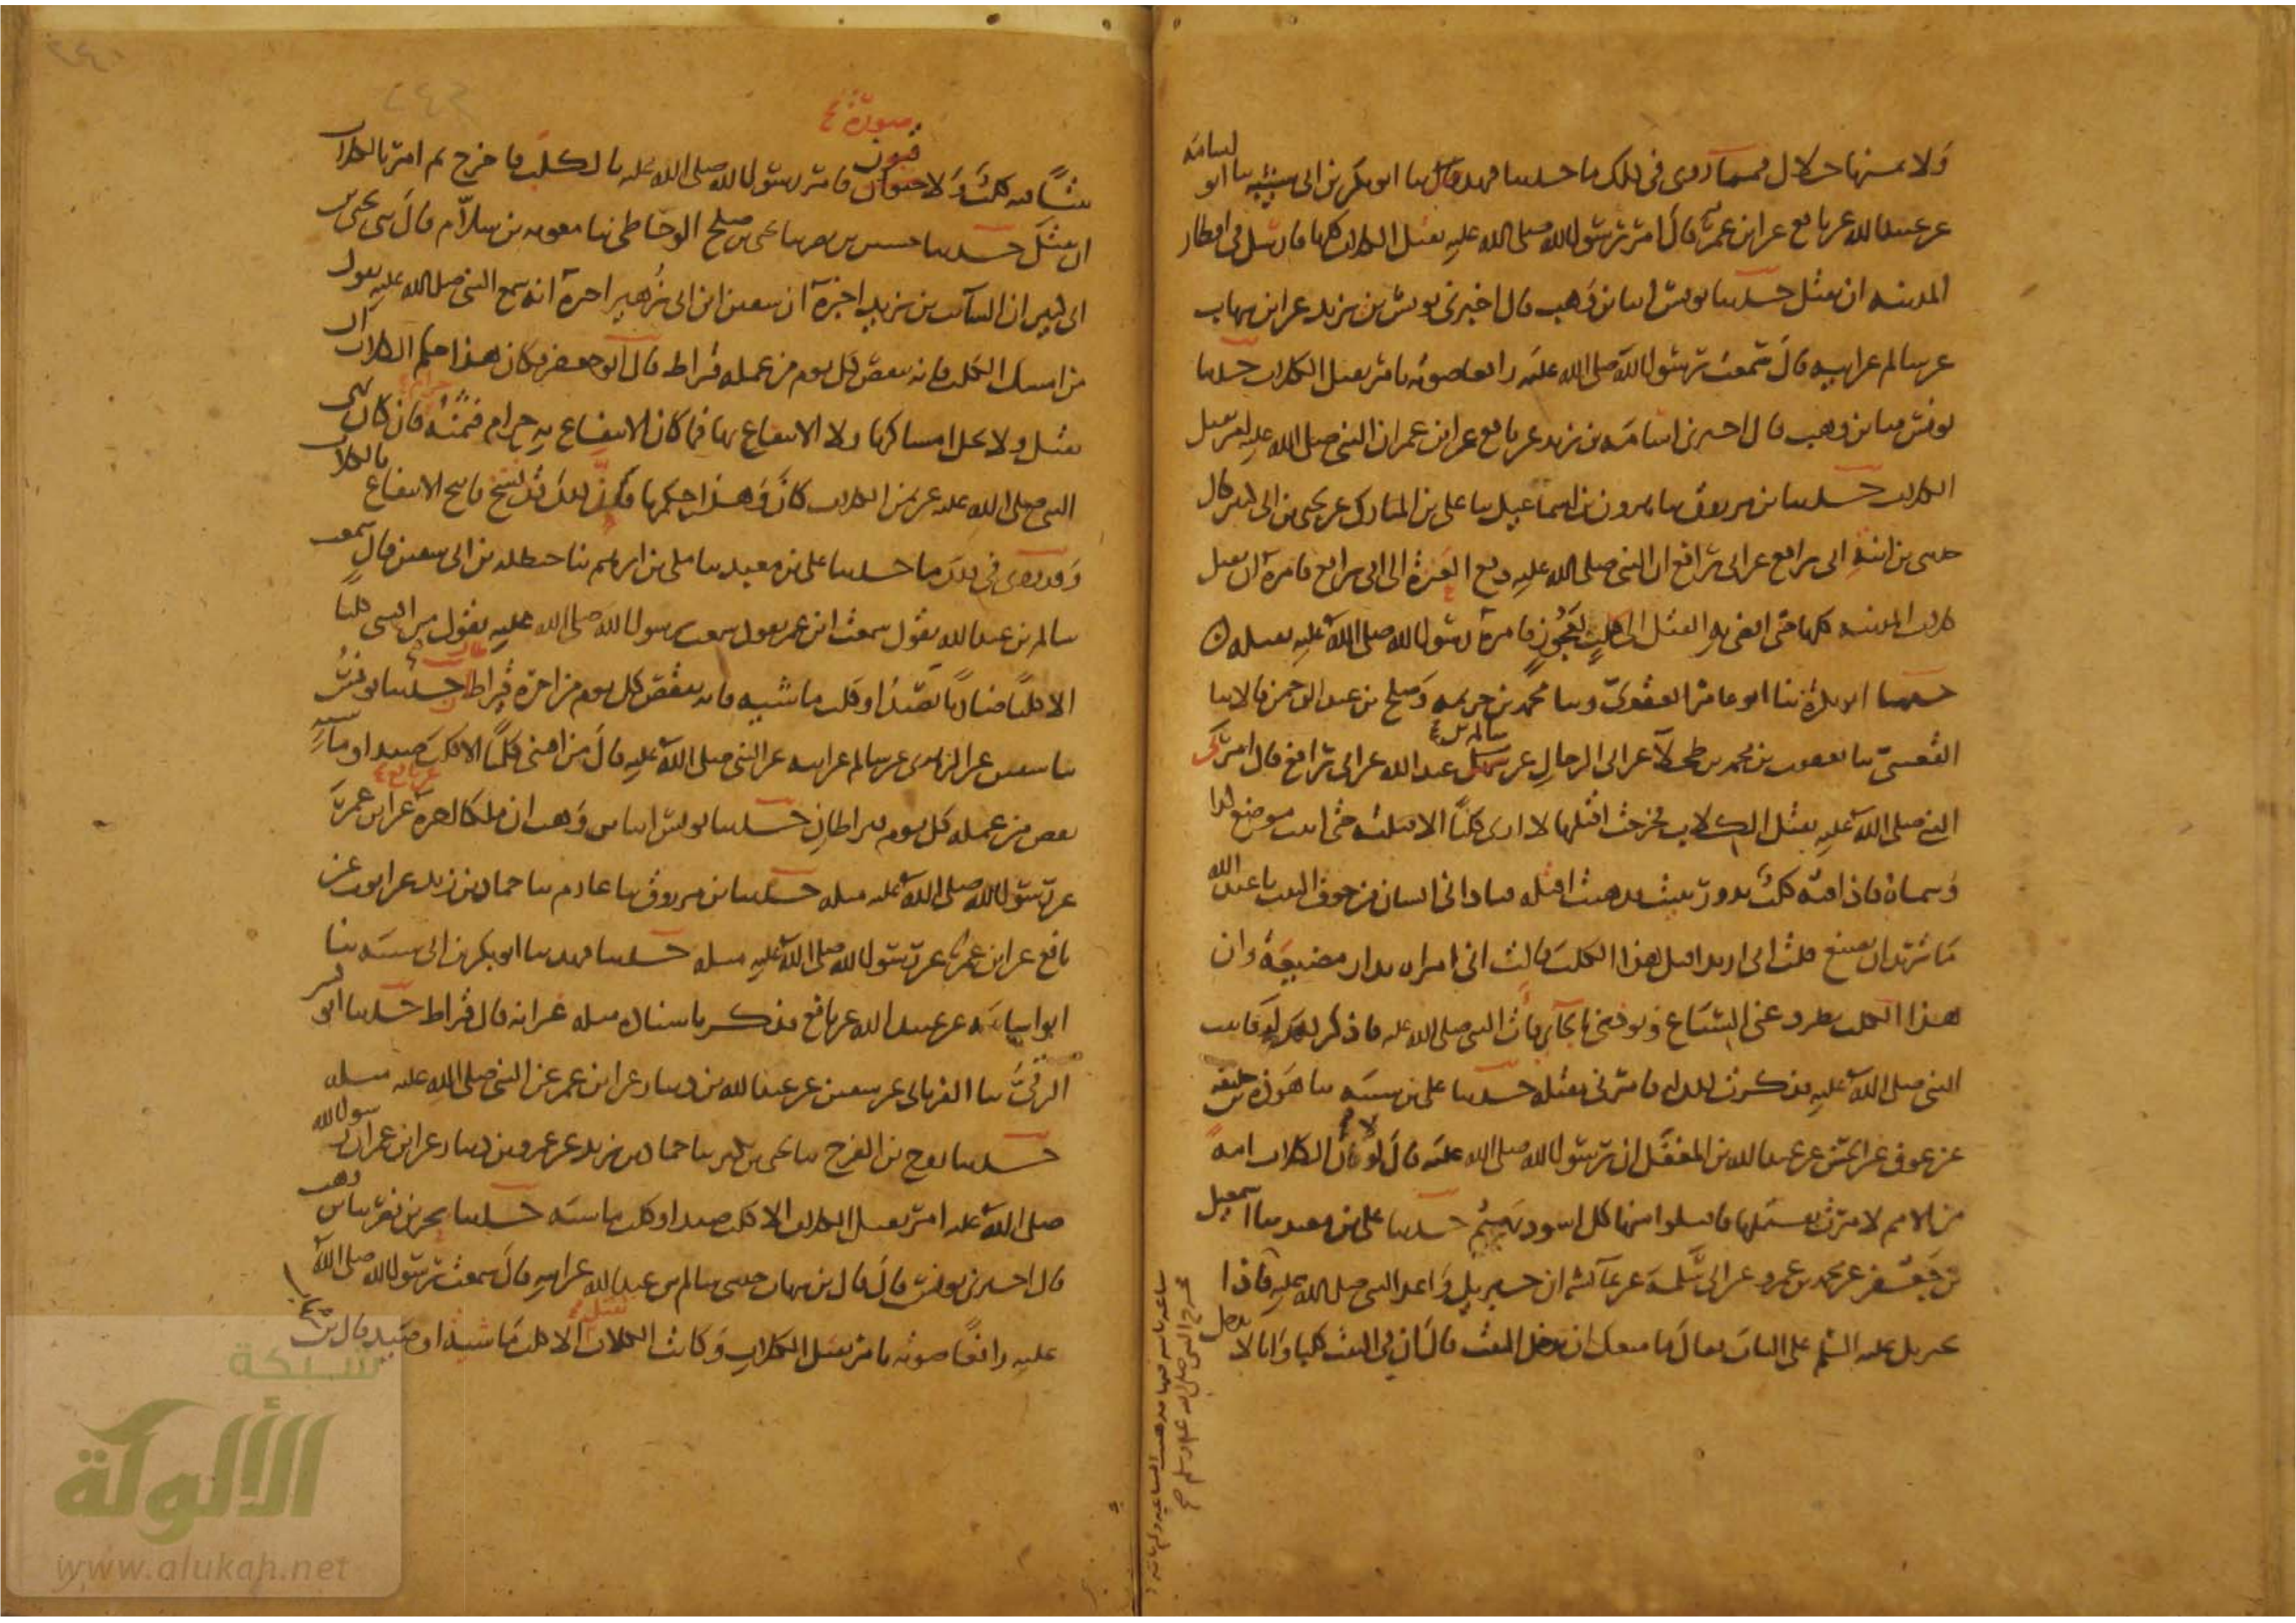 ولا ثمنها حلال فمما روى في ذلك ما حدثنا فهد قال ثنا ابو بكر بن ابي شيبة ثنا ابو اسامة
عن عبيد الله عن نافع عن ابن عمر قال امر رسول الله صلى الله عليه بقتل الكلاب كلها فارسل في اقطار
المدينة ان تقتل حدثنا يونس انبا بن وهب قال اخبرني يونس بن يزيد عن ابن شهاب
عن سالم عن ابيه قال سمعت رسول الله صلى الله عليه رافعا صوته يامر بقتل الكلاب حدثنا
يونس ثنا بن وهب قال اخبرني اسامة بن زيد عن نافع عن ابن عمر ان النبي صلى الله عليه امر بقتل
الكلاب حدثنا بن مرزوق ثنا هرون بن اسماعيل ثنا على بن المبارك عن يحيى بن ابي كثير قال
حدثني بن ابنة ابي رافع عن ابي رافع ان النبي صلى الله عليه دفع العنزة الى ابي رافع فامره ان يقتل
كلاب المدينة كلها حتى افضى به القتل الى كلب لعجوز فامره رسول الله صلى الله عليه بقتله
حدثنا ابو بكرة ثنا ابو عامر العقدي وثنا محمد بن خزيمة وصلح بن عبد الرحمن قالا ثنا
القعنبي ثنا يعقوب بن محمد بن طحلا عن ابي الرجال عن سالم بن عبد الله عن ابي رافع قال امرني
النبي صلى الله عليه بقتل الكلاب فخرجت اقتلها لا ارى كلبا الا قتلته حتى اتيت موضع كذا
وسماه فاذا فيه كلب يدور ببيت فذهبت اقتله فناداني انسان من جوف البيت يا عبد الله
ما تريد ان تصنع قلت اني اريد اقتل هذا الكلب قالت اني امراة بدار مضيعة وان
هذا الكلب يطرد عني السباع ويوذنني بالجآئي فأت النبي صلى الله عليه فاذكر له ذلك فاتيت
النبي صلى الله عليه فذكرت ذلك له فامرني بقتله حدثنا على بن شيبة ثنا هوذة بن خليفة
عن عوف عن الحسن عن عبد الله بن المغفل ان رسول الله صلى الله عليه قال لولا ان الكلاب امة
من الامم لامرت بقتلها فاقتلوا منها كل اسود بهيم حدثنا على بن معبد ثنا اسمعيل
بن جعفر عن محمد بن عمرو عن ابي سلمة عن عآئشه ان جبريل واعد النبي صلى الله عليه فاذا
جبريل عليه السلم على الباب فقال ما منعك ان تدخل البيت قال ان في البيت كلبا وانا لا ندخل
بيتا فيه كلب ولا صورة فامر رسول الله صلى الله عليه بالكلب فاخرج ثم امر بالكلاب
ان تقتل حدثنا حسين بن نصر ثنا يحيى بن صلح الوحاظي ثنا معوية بن سلام قال ثني يحيى بن
ابي كثير ان السآئب بن يزيد اخبره ان سفين ابن ابي زهير اخبره انه سمع النبي صلى الله عليه يقول
من امسك الكلب فانه ينقص كل يوم من عمله قيراط قال ابو جعفر فكان هذا حكم الكلاب ان
تقتل ولا يحل امساكها ولا الانتفاع بها فما كان الانتفاع به حرام فثمنه حرام فان كان نهى
النبي صلى الله عليه عن ثمن الكلاب كان وهذا حكمها فان ذلك قد نسخ فابيح الانتفاع بالكلاب
وقد روى في ذلك ما حدثنا على بن معبد ثنا مكي بن ابرهيم ثنا حنظلة بن ابي سفين قال سمعت
سالم بن عبد الله يقول سمعت ابن عمر يقول سمعت رسول الله صلى الله عليه يقول من اقتنى كلبا
الا كلبا ضاريا لصيد او كلب ماشية فانه ينقص كل يوم من اجره قيراطان حدثنا يونس
ثنا سفين عن الزهري عن سالم عن ابيه عن النبي صلى الله عليه قال من اقتنى كلبا الا كلب صيد او ماشية
نقص من عمله كل يوم قيراطان حدثنا يونس انبا بن وهب ان ملكا اخبره عن نافع عن ابن عمر
عن رسول الله صلى الله عليه مثله حدثنا بن مرزوق ثنا عارم ثنا حماد بن زيد عن ايوب عن
نافع عن ابن عمر عن رسول الله صلى الله عليه مثله حدثنا فهد ثنا ابو بكر بن ابي شيبة ثنا
ابو اسامة عن عبيد الله عن نافع فذكر باسناده مثله غير انه قال قيراط حدثنا ابو بشر
الرقي ثنا الفريابي عن سفين عن عبد الله بن دينار عن ابن عمر عن النبي صلى الله عليه مثله
حدثنا روح بن الفرج ثنا يحيى بن بكير ثنا حماد بن زيد عن عمرو بن دينار عن ابن عمر ان رسول الله
صلى الله عليه امر بقتل الكلاب الا كلب صيد او كلب ماشية حدثنا بحر بن نصر ثنا بن وهب
قال اخبرني يونس قال قال بن شهاب حدثني سالم بن عبد الله عن ابيه قال سمعت رسول الله صلى الله
عليه رافعا صوته يامر بقتل الكلاب وكانت الكلاب تقتل الا كلب ماشية او صيد قال بن
شبكة
الألوكة
www.alukah.net